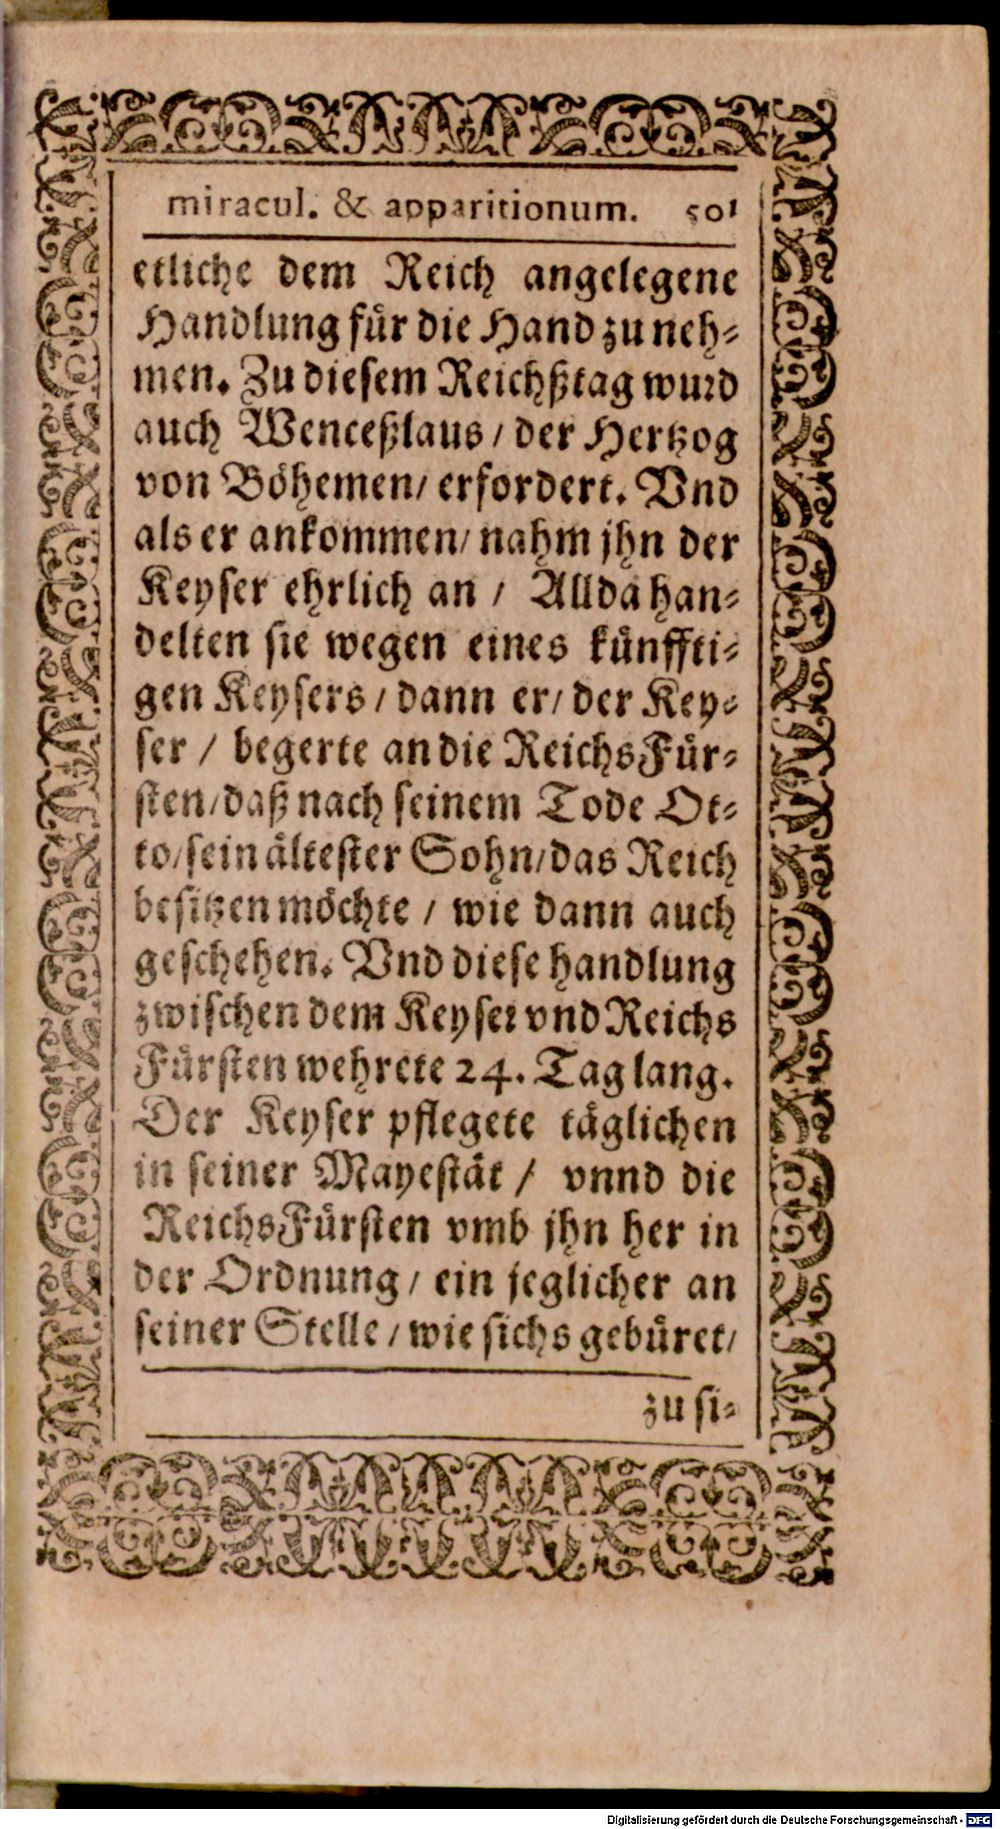 miracul. & apparitionum. 501
etliche dem Reich angelegene
Handlung für die Hand zu neh-
men. Zu diesem Reichßtag wurd
auch Wenceßlaus / der Hertzog
von Böhemen / erfordert. Vnd
als er ankommen / nahm jhn der
Keyser ehrlich an / Allda han-
delten sie wegen eines künffti-
gen Keysers / dann er / der Key-
ser / begerte an die ReichsFür-
sten / daß nach seinem Tode Ot-
to / sein ältester Sohn / das Reich
besitzen möchte / wie dann auch
geschehen. Vnd diese handlung
zwischen dem Keyser vnd Reichs
Fürsten wehrete 24. Tag lang.
Der Keyser pflegete täglichen
in seiner Mayestät / vnnd die
ReichsFürsten vmb jhn her in
der Ordnung / ein jeglicher an
seiner Stelle / wie sichs gebüret /
zu si-
Digitalisierung gefördert durch die Deutsche Forschungsgemeinschaft - DFG